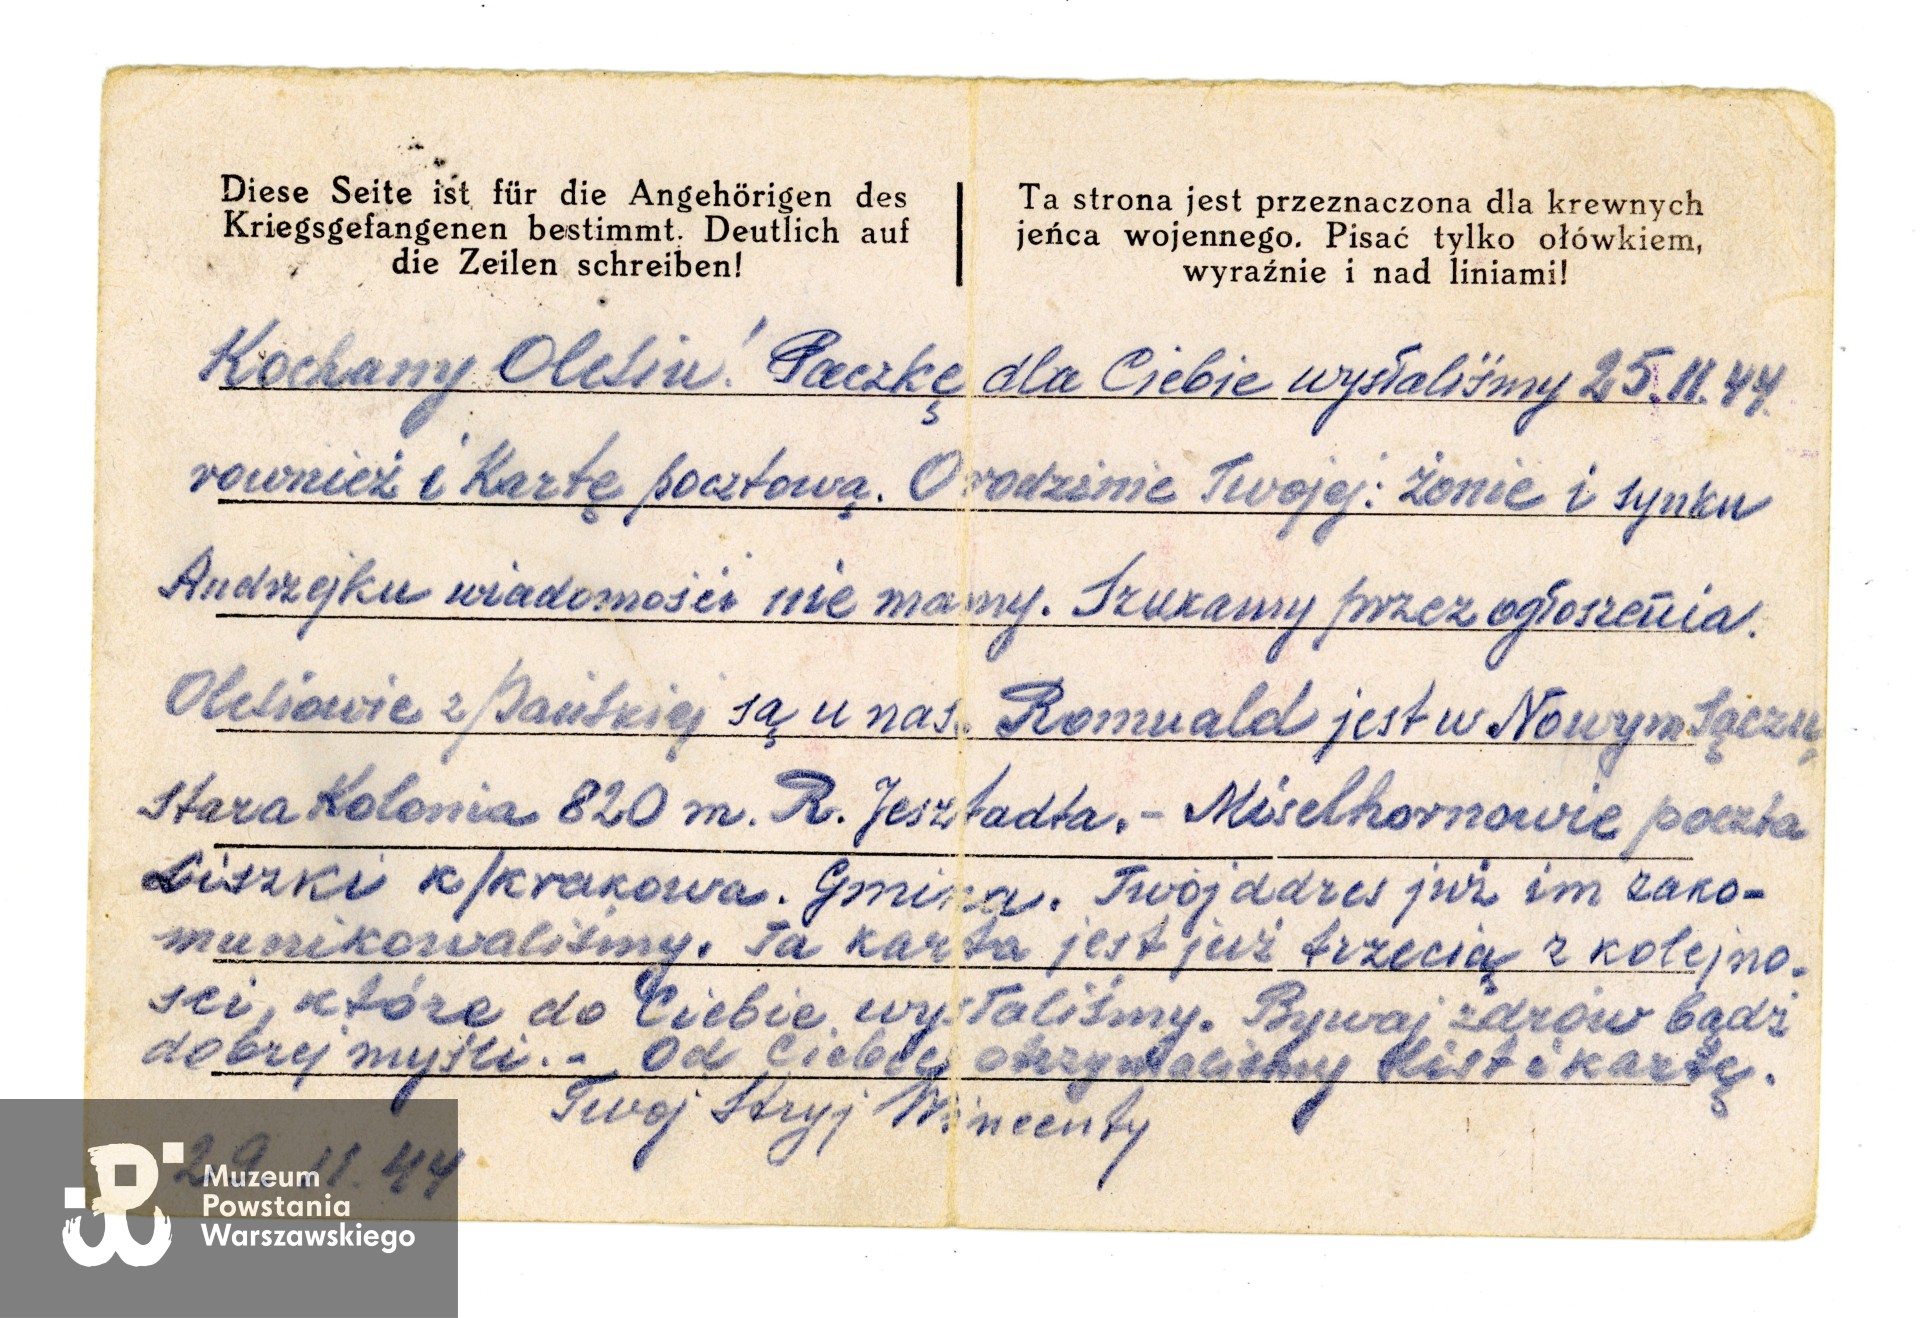 Diese Seite ist für die Angehörigen des
Kriegsgefangenen bestimmt. Deutlich auf
die Zeilen schreiben!
Ta strona jest przeznaczona dla krewnych
jeńca wojennego. Pisać tylko ołówkiem,
wyraźnie i nad liniami!
Kochany Olesiu! Paczkę dla Ciebie wysłaliśmy 25.11.44.
rownież i Kartę pocztową. O rodzinie Twojej: żonie i synku
Andrzejku wiadomości nie mamy. Szukamy przez ogłoszenia.
Olesiowie z Pańskiej są u nas. Romuald jest w Nowym Sączu,
Stara Kolonia 820 m. R. Jesztadta. - Miselhornowie poczta
Liszki k/Krakowa. Gmina. Twój adres już im zako-
munikowaliśmy. Ta karta jest już trzecią z kolejno-
sci, które do Ciebie wysłaliśmy. Bywaj zdrów bądź
dobrej myśli. - Od Ciebie otrzymaliśmy list i kartę.
Twoj Stryj Wincenty
29.11.44
Muzeum
Powstania
Warszawskiego